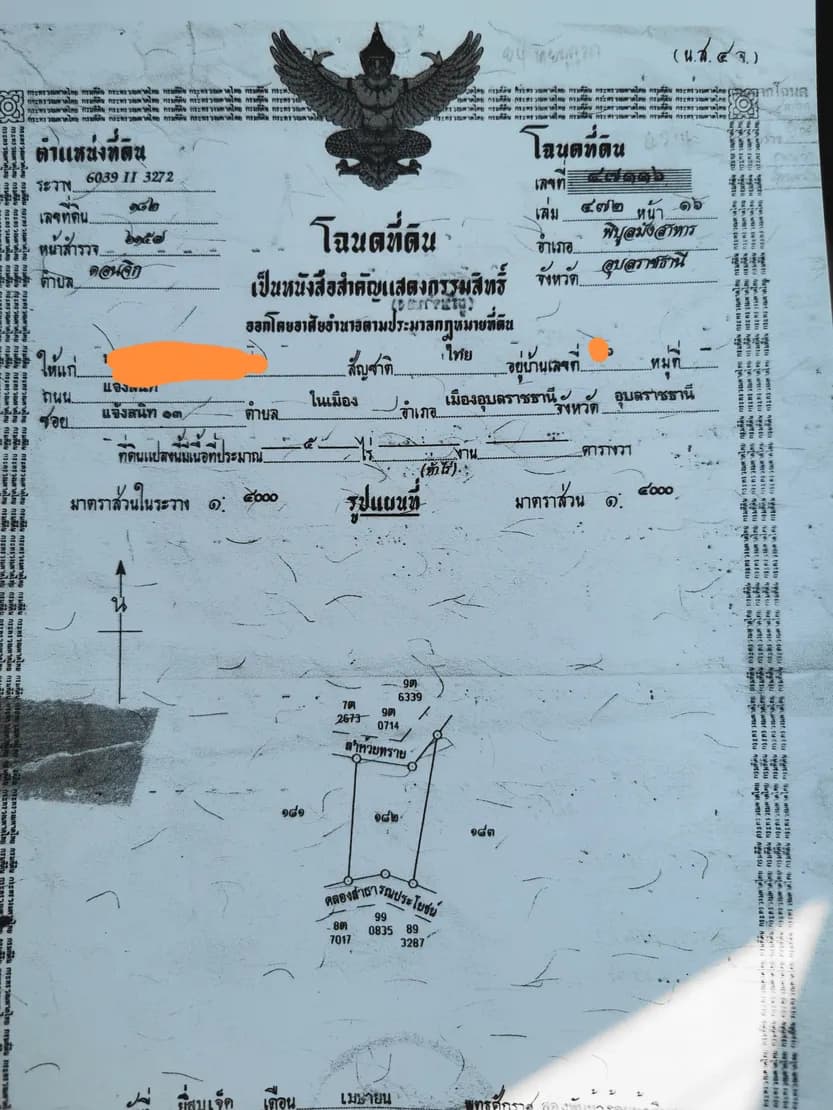 (น.ส. ๔ จ.)
ตำแหน่งที่ดิน
ระวาง 6039 II 3272
เลขที่ดิน ๑๘๒
หน้าสำรวจ
ตำบล ดอนจิก
โฉนดที่ดิน
เลขที่ ๔๗๑๑๖
เล่ม ๔๗๒ หน้า ๑๖
อำเภอ พิบูลมังสาหาร
จังหวัด อุบลราชธานี
โฉนดที่ดิน
เป็นหนังสือสำคัญแสดงกรรมสิทธิ์
ออกโดยอาศัยอำนาจตามประมวลกฎหมายที่ดิน
ให้แก่ สัญชาติ ไทย อยู่บ้านเลขที่ หมู่ที่
ถนน แจ้งสนิท
ซอย แจ้งสนิท ๑๓ ตำบล ในเมือง อำเภอ เมืองอุบลราชธานี จังหวัด อุบลราชธานี
ที่ดินแปลงนี้มีเนื้อที่ประมาณ ๕ ไร่ งาน ตารางวา
(ห้าไร่)
มาตราส่วนในระวาง ๑: ๔๐๐๐ รูปแผนที่ มาตราส่วน ๑: ๔๐๐๐
น
9ต
6339
7ต
2673
9ต
0714
ลำห้วยทราย
๑๘๑
๑๘๒
๑๘๓
คลองสาธารณประโยชน์
8ต
7017
99
0835
89
3287
ยี่สิบเจ็ด เดือน เมษายน พุทธศักราช